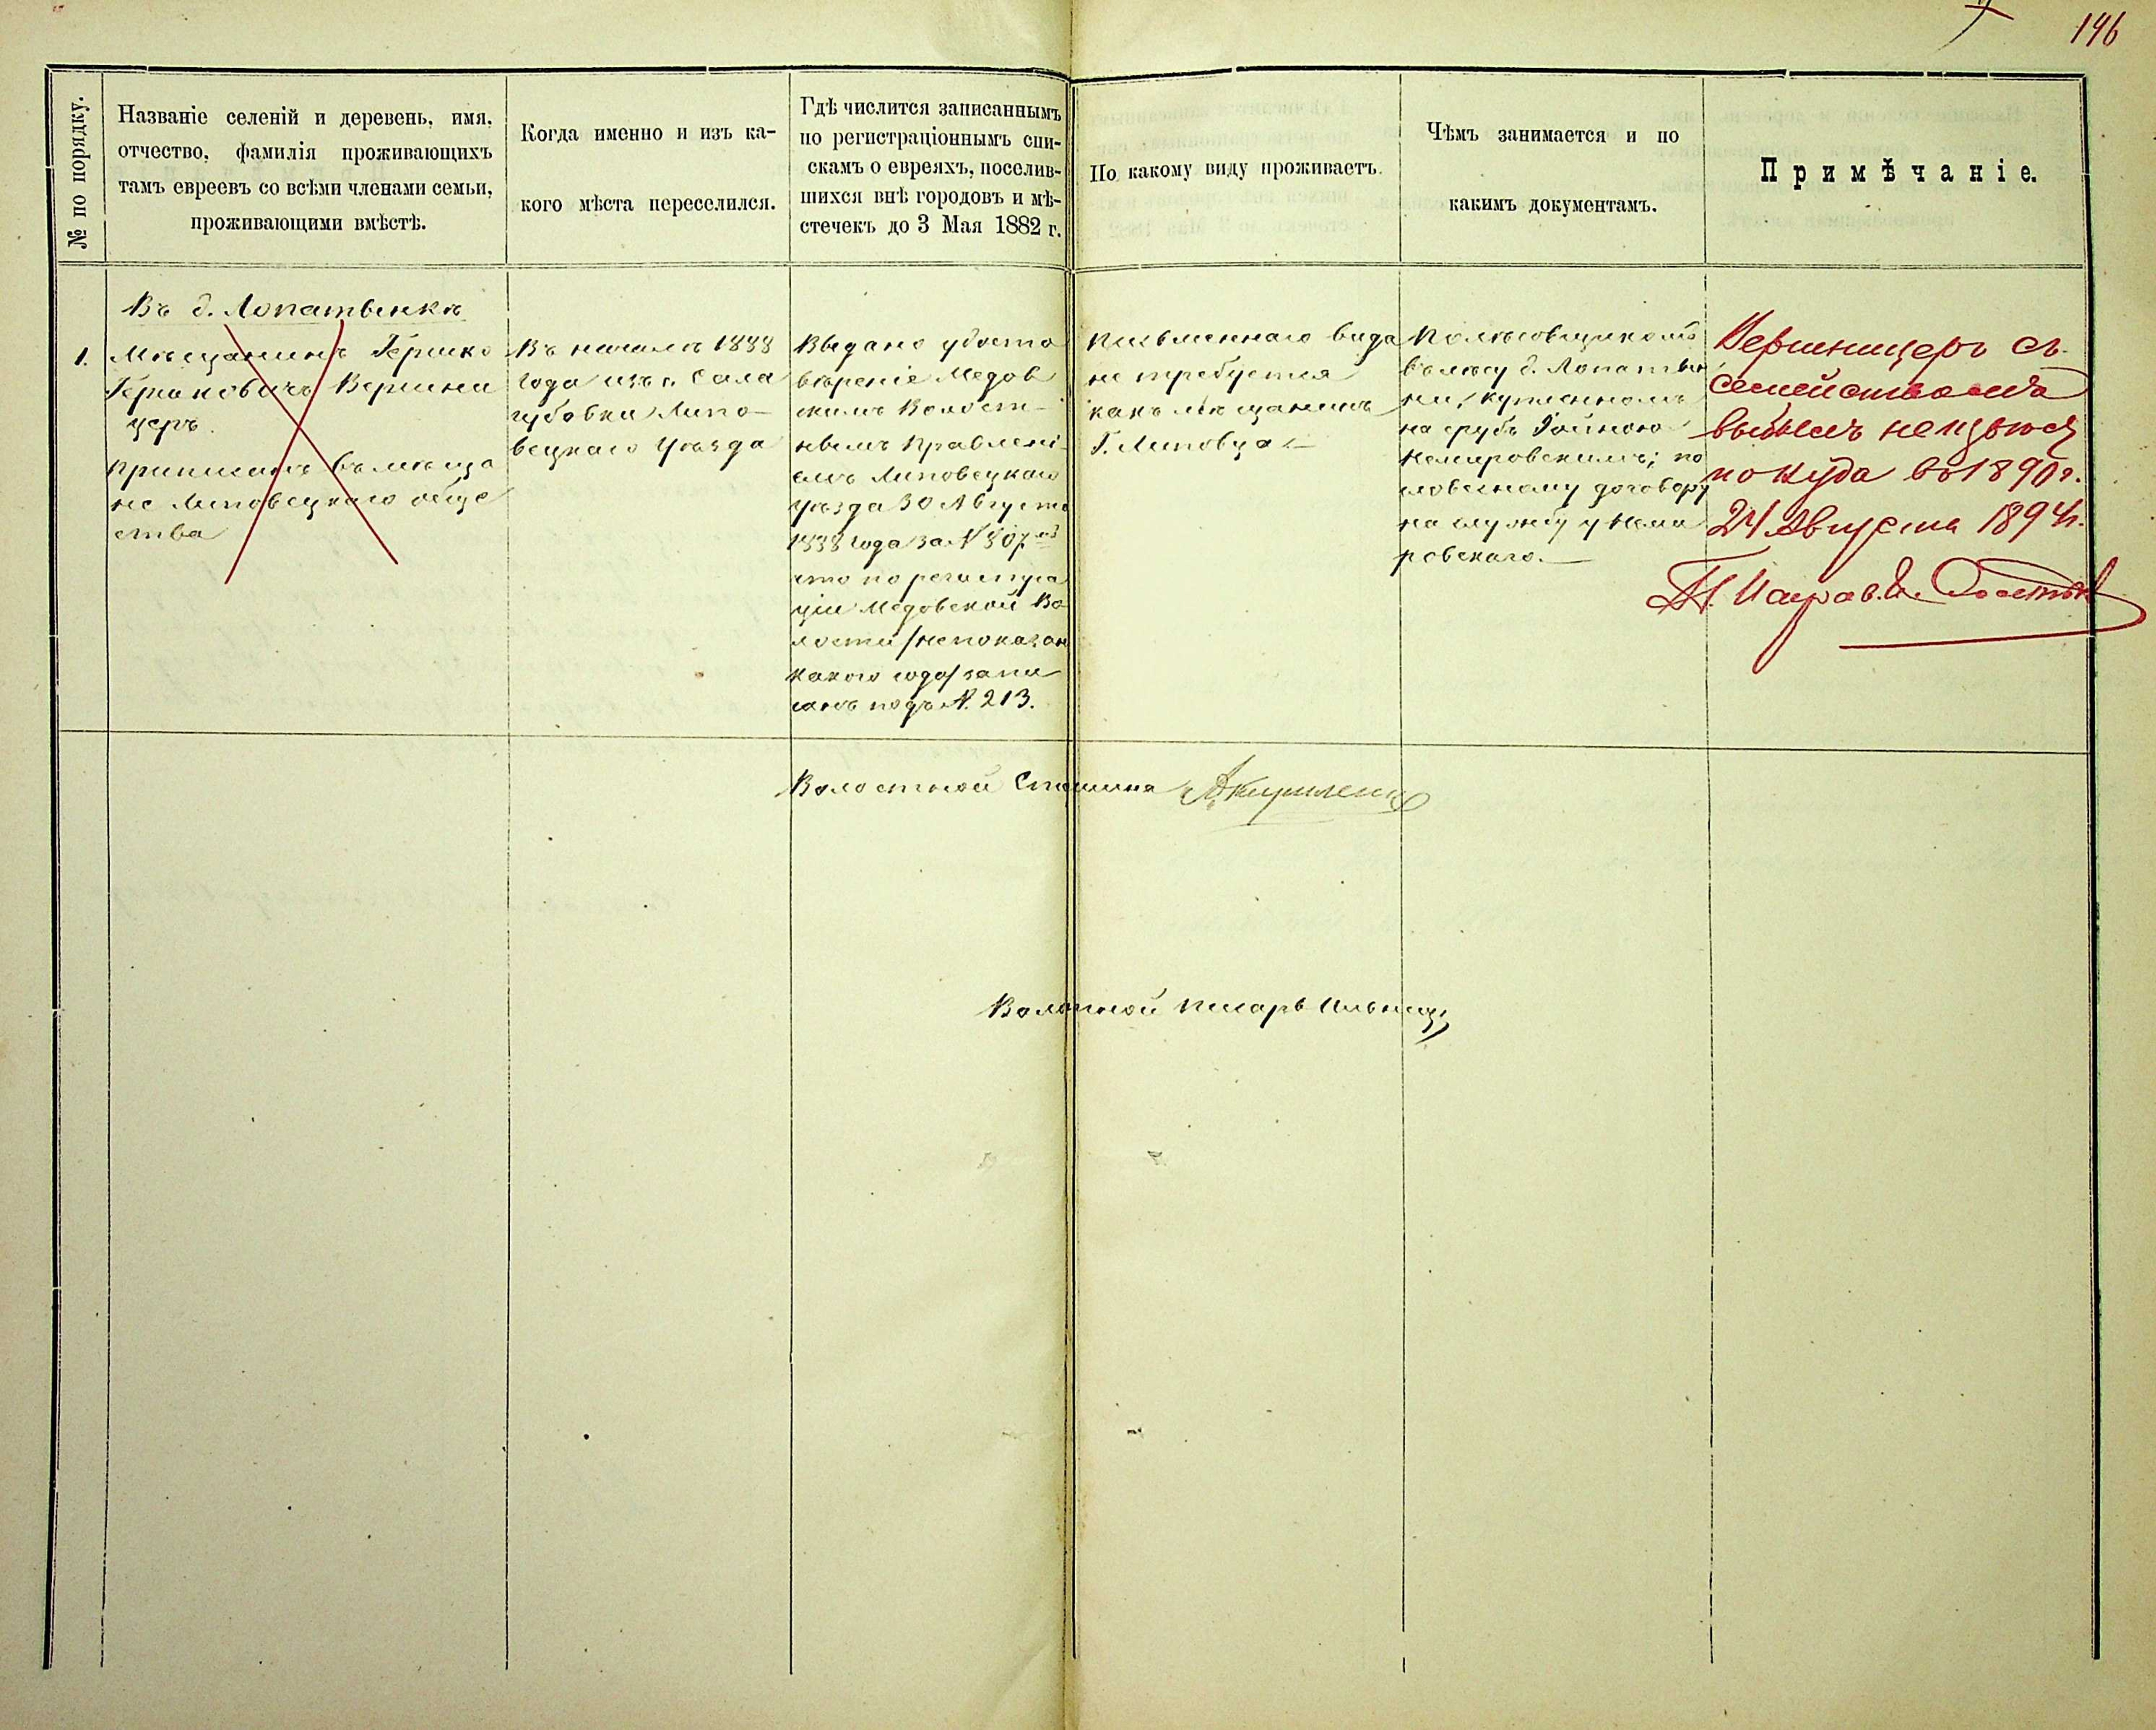 196
№ по порядку.
Названіе селеній и деревень, имя,
отчество, фамилія проживающихъ
тамъ евреевъ со всѣми членами семьи,
проживающими вмѣстѣ.
Когда именно и изъ ка-
кого мѣста переселился.
Гдѣ числится записаннымъ
по регистраціоннымъ спи-
скамъ о евреяхъ, поселив-
шихся внѣ городовъ и мѣ-
стечекъ до 3 Мая 1882 г.
По какому виду проживаетъ.
Чѣмъ занимается и по
какимъ документамъ.
Примѣчаніе.
1.
Въ д. Лопатынкѣ
Мѣщанинъ Гершко
Гершковичъ Вершни
церъ.
приписанъ въ мѣща
не Липовецкаго обще
ства
Въ началѣ 1888
года изъ с. Сала
губовки Липо-
вецкаго уѣзда
Выдано удосто
вѣреніе Медов
скимъ Волост-
нымъ Правлені
емъ Липовецкаго
уѣзда 30 Августа
1888 года за № 807
что по регистра
ціи Медовской Во
лости /не показан
какого года/ запи
санъ подъ №. 213.
письменнаго вида
не требуется
какъ мѣщанинъ
Г. Липовца
Полѣсовщикомъ
въ лѣсу д. Лопатын
ки, купленномъ
на срубъ
Немировскимъ; по
словесному договору
на службу у Неми
ровскаго.
Вершницеръ съ
семействомъ
выбылъ
по куда въ 1890 г.
24 Августа 1894 г.
Волостной Старшина
Волостной писарь